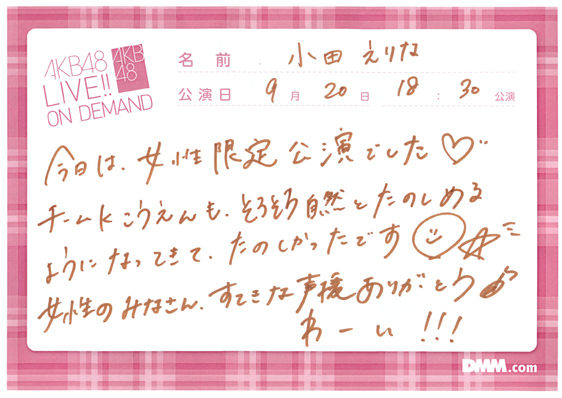 AKB48
LIVE!!
ON DEMAND
AKB
48
名前 小田えりな
公演日 9月20日 18:30公演
今日は、女性限定公演でした♡
チームKこうえんも、そろそろ自然とたのしめる
ようになってきて、たのしかったです☺☆
女性のみなさん、すてきな声援ありがとう♪
わーい!!!
DMM.com